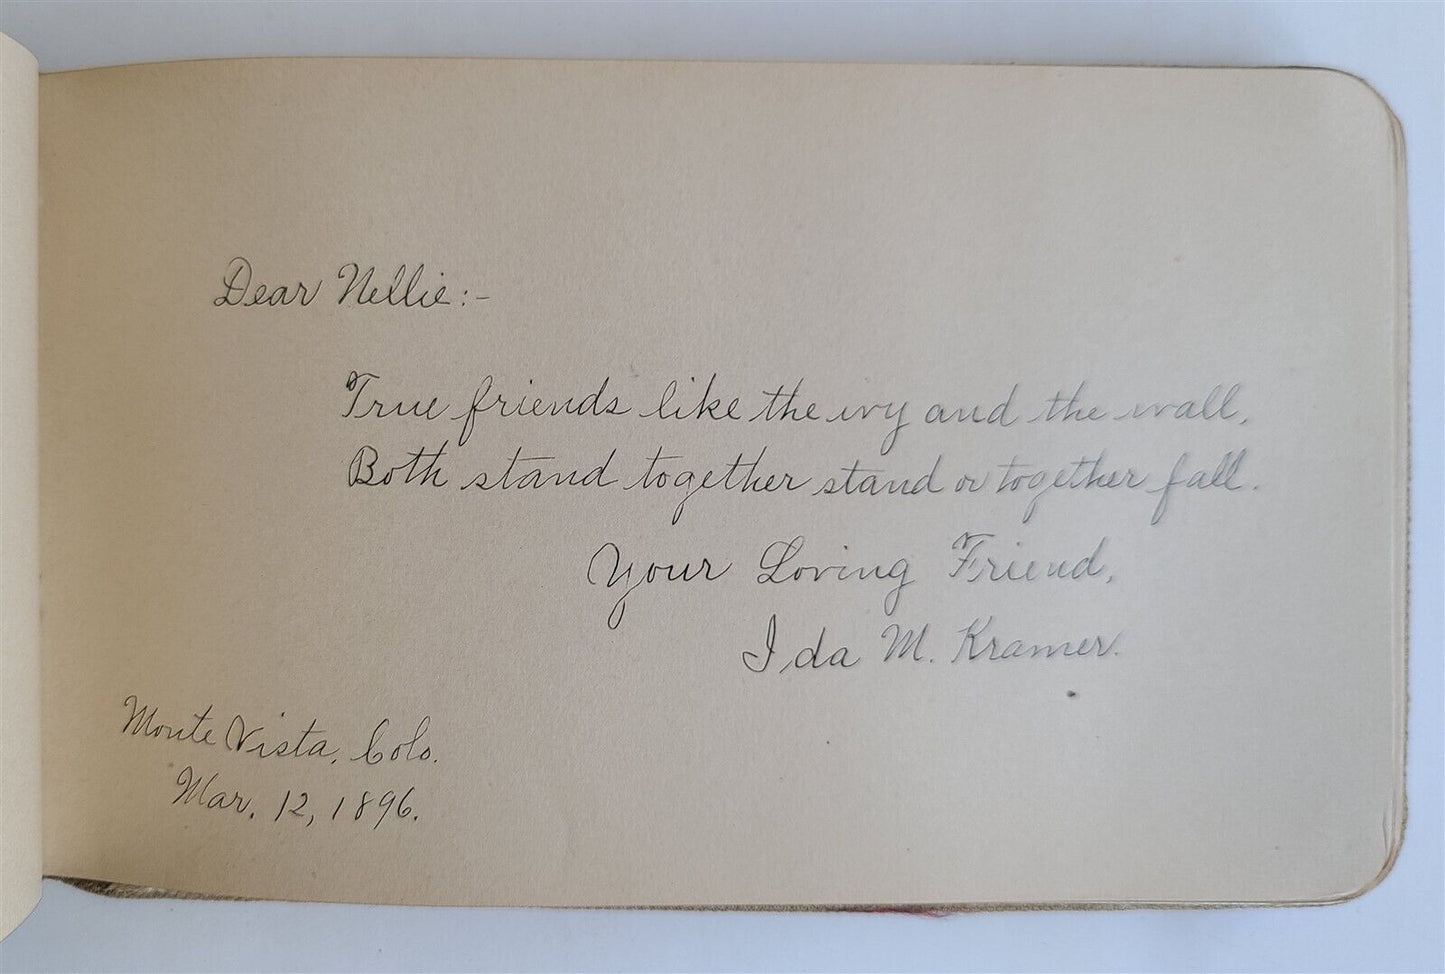 Dear Nellie:-
True friends like the ivy and the wall,
Both stand together stand or together fall.
Your Loving Friend,
Ida M. Kramer.
Monte Vista, Colo.
Mar. 12, 1896.